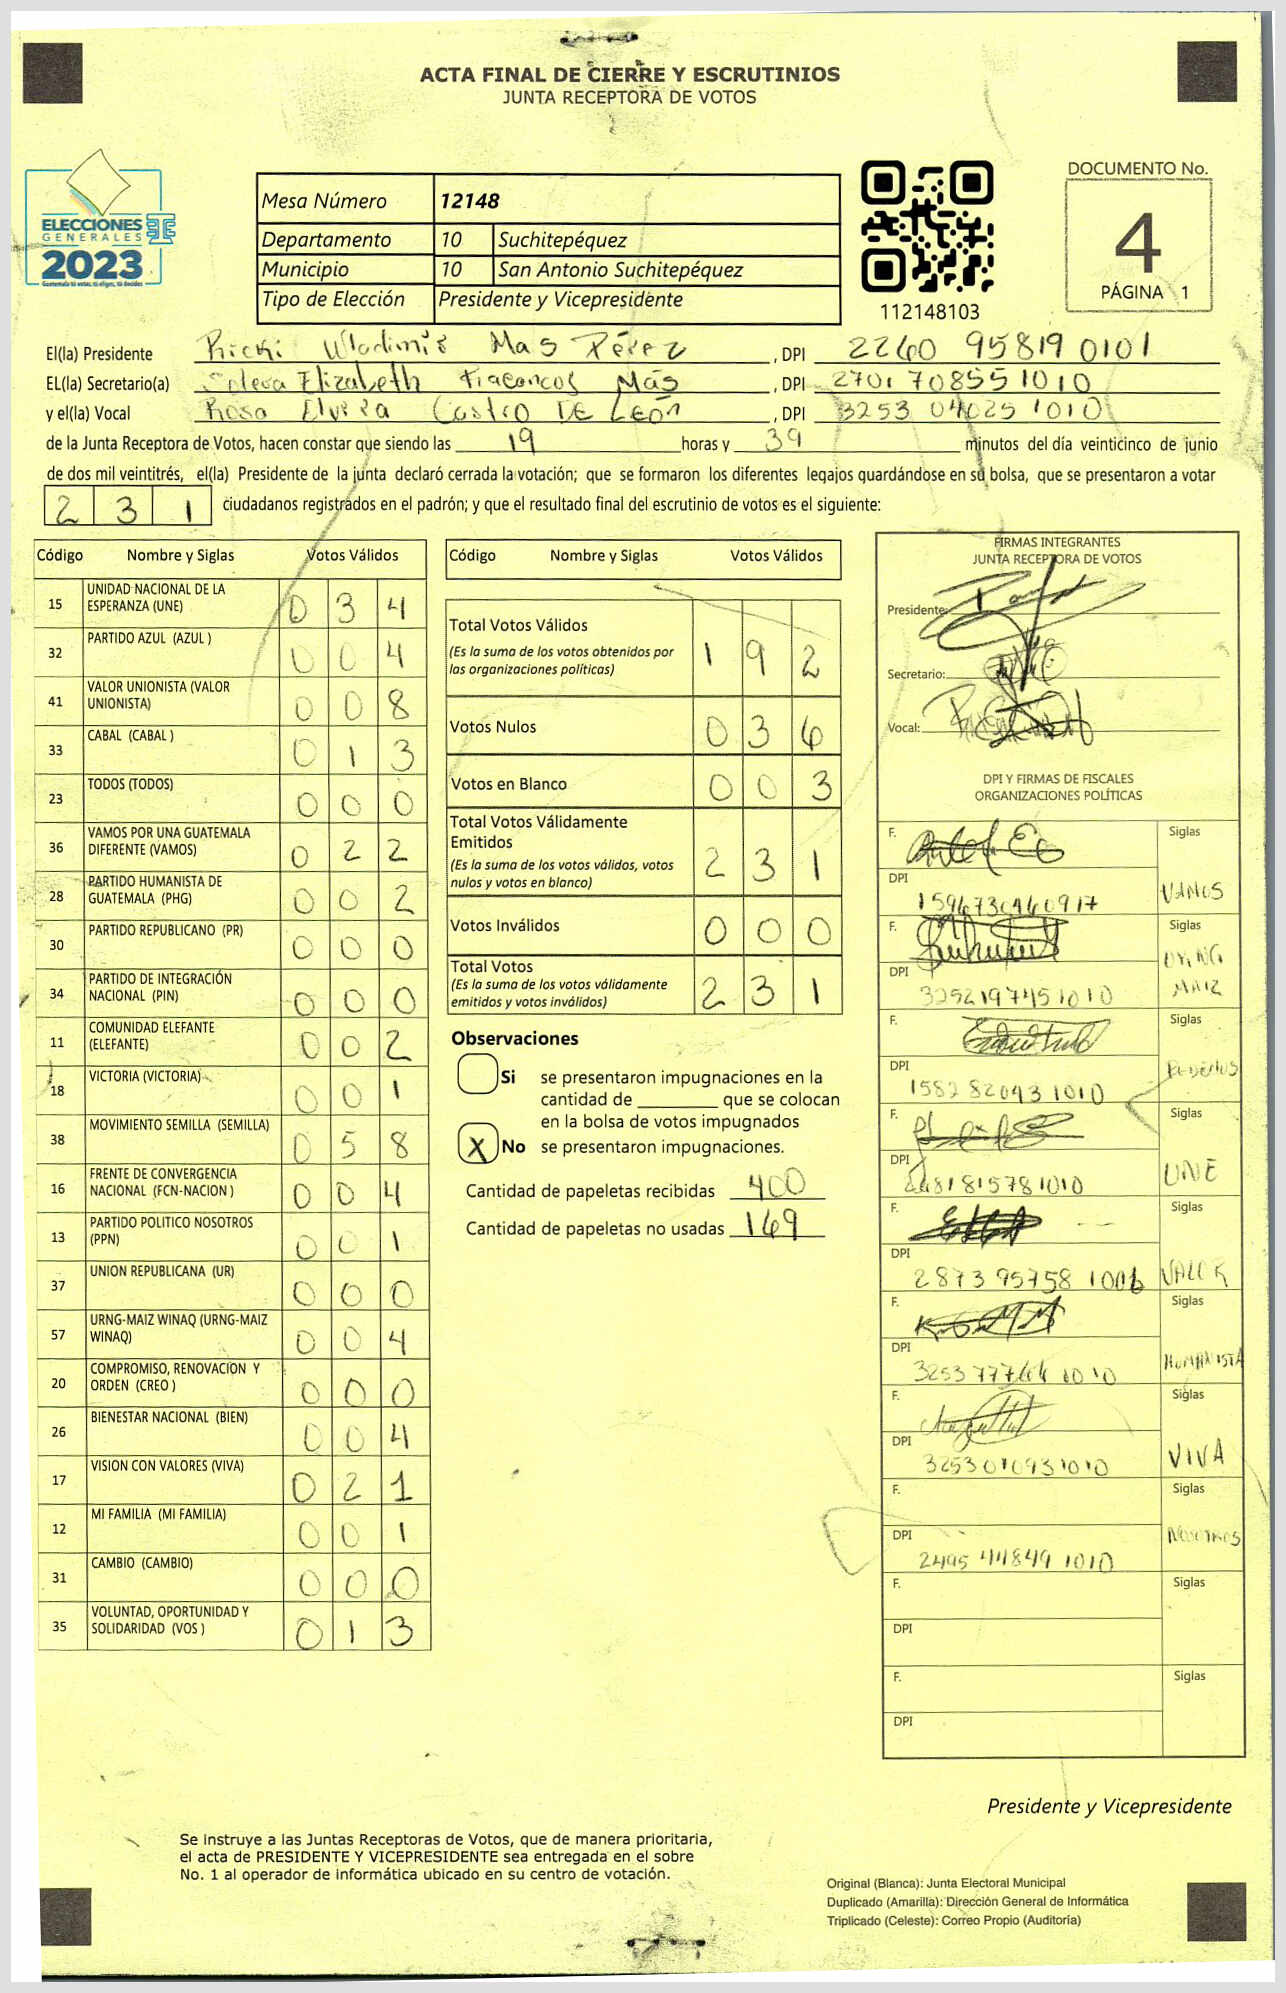 ACTA FINAL DE CIERRE Y ESCRUTINIOS
JUNTA RECEPTORA DE VOTOS
ELECCIONES
GENERALES
2023
Guatemala tú votas, tú eliges, tú decides
Mesa Número 12148
Departamento 10 Suchitepéquez
Municipio 10 San Antonio Suchitepéquez
Tipo de Elección Presidente y Vicepresidente
112148103
DOCUMENTO No.
4
PÁGINA 1
El(la) Presidente Ricki Wladimir Mas Pérez, DPI 2260 95819 0101
EL(la) Secretario(a) Elizabeth Más, DPI 2701 70855 1010
y el(la) Vocal Rosa Elvira Castro DE LEÓN, DPI 3253 04025 1010
de la Junta Receptora de Votos, hacen constar que siendo las 19 horas y 39 minutos del día veinticinco de junio
de dos mil veintitrés, el(la) Presidente de la junta declaró cerrada la votación; que se formaron los diferentes legajos guardándose en su bolsa, que se presentaron a votar
231 ciudadanos registrados en el padrón; y que el resultado final del escrutinio de votos es el siguiente:
Código Nombre y Siglas Votos Válidos
15 UNIDAD NACIONAL DE LA ESPERANZA (UNE) 034
32 PARTIDO AZUL (AZUL ) 004
41 VALOR UNIONISTA (VALOR UNIONISTA) 008
33 CABAL (CABAL ) 013
23 TODOS (TODOS) 000
36 VAMOS POR UNA GUATEMALA DIFERENTE (VAMOS) 022
28 PARTIDO HUMANISTA DE GUATEMALA (PHG) 002
30 PARTIDO REPUBLICANO (PR) 000
34 PARTIDO DE INTEGRACIÓN NACIONAL (PIN) 000
11 COMUNIDAD ELEFANTE (ELEFANTE) 002
18 VICTORIA (VICTORIA) 001
38 MOVIMIENTO SEMILLA (SEMILLA) 058
16 FRENTE DE CONVERGENCIA NACIONAL (FCN-NACION ) 004
13 PARTIDO POLITICO NOSOTROS (PPN) 001
37 UNION REPUBLICANA (UR) 000
57 URNG-MAIZ WINAQ (URNG-MAIZ WINAQ) 004
20 COMPROMISO, RENOVACION Y ORDEN (CREO ) 000
26 BIENESTAR NACIONAL (BIEN) 004
17 VISION CON VALORES (VIVA) 021
12 MI FAMILIA (MI FAMILIA) 001
31 CAMBIO (CAMBIO) 000
35 VOLUNTAD, OPORTUNIDAD Y SOLIDARIDAD (VOS ) 013
Código Nombre y Siglas Votos Válidos
Total Votos Válidos 192
(Es la suma de los votos obtenidos por
las organizaciones políticas)
Votos Nulos 036
Votos en Blanco 003
Total Votos Válidamente
Emitidos 231
(Es la suma de los votos válidos, votos
nulos y votos en blanco)
Votos Inválidos 000
Total Votos 231
(Es la suma de los votos válidamente
emitidos y votos inválidos)
Observaciones
Si se presentaron impugnaciones en la
cantidad de ________ que se colocan
en la bolsa de votos impugnados
X No se presentaron impugnaciones.
Cantidad de papeletas recibidas 400
Cantidad de papeletas no usadas 169
FIRMAS INTEGRANTES
JUNTA RECEPTORA DE VOTOS
Presidente:
Secretario:
Vocal:
DPI Y FIRMAS DE FISCALES
ORGANIZACIONES POLÍTICAS
F. Siglas
DPI VAMOS
F. Siglas
DPI 3252197451010 URNG MAIZ
F. Siglas
DPI 1582 82093 1010
F. Siglas
DPI 2481815781010 UNE
F. Siglas
DPI 2873 95758 1006 VALOR
F. Siglas
DPI HUMANISTA
F. Siglas
DPI 3253010931010 VIVA
F. Siglas
DPI 2495 44849 1010 NOSOTROS
F. Siglas
DPI
F. Siglas
DPI
Presidente y Vicepresidente
Se instruye a las Juntas Receptoras de Votos, que de manera prioritaria,
el acta de PRESIDENTE Y VICEPRESIDENTE sea entregada en el sobre
No. 1 al operador de informática ubicado en su centro de votación.
Original (Blanca): Junta Electoral Municipal
Duplicado (Amarilla): Dirección General de Informática
Triplicado (Celeste): Correo Propio (Auditoría)